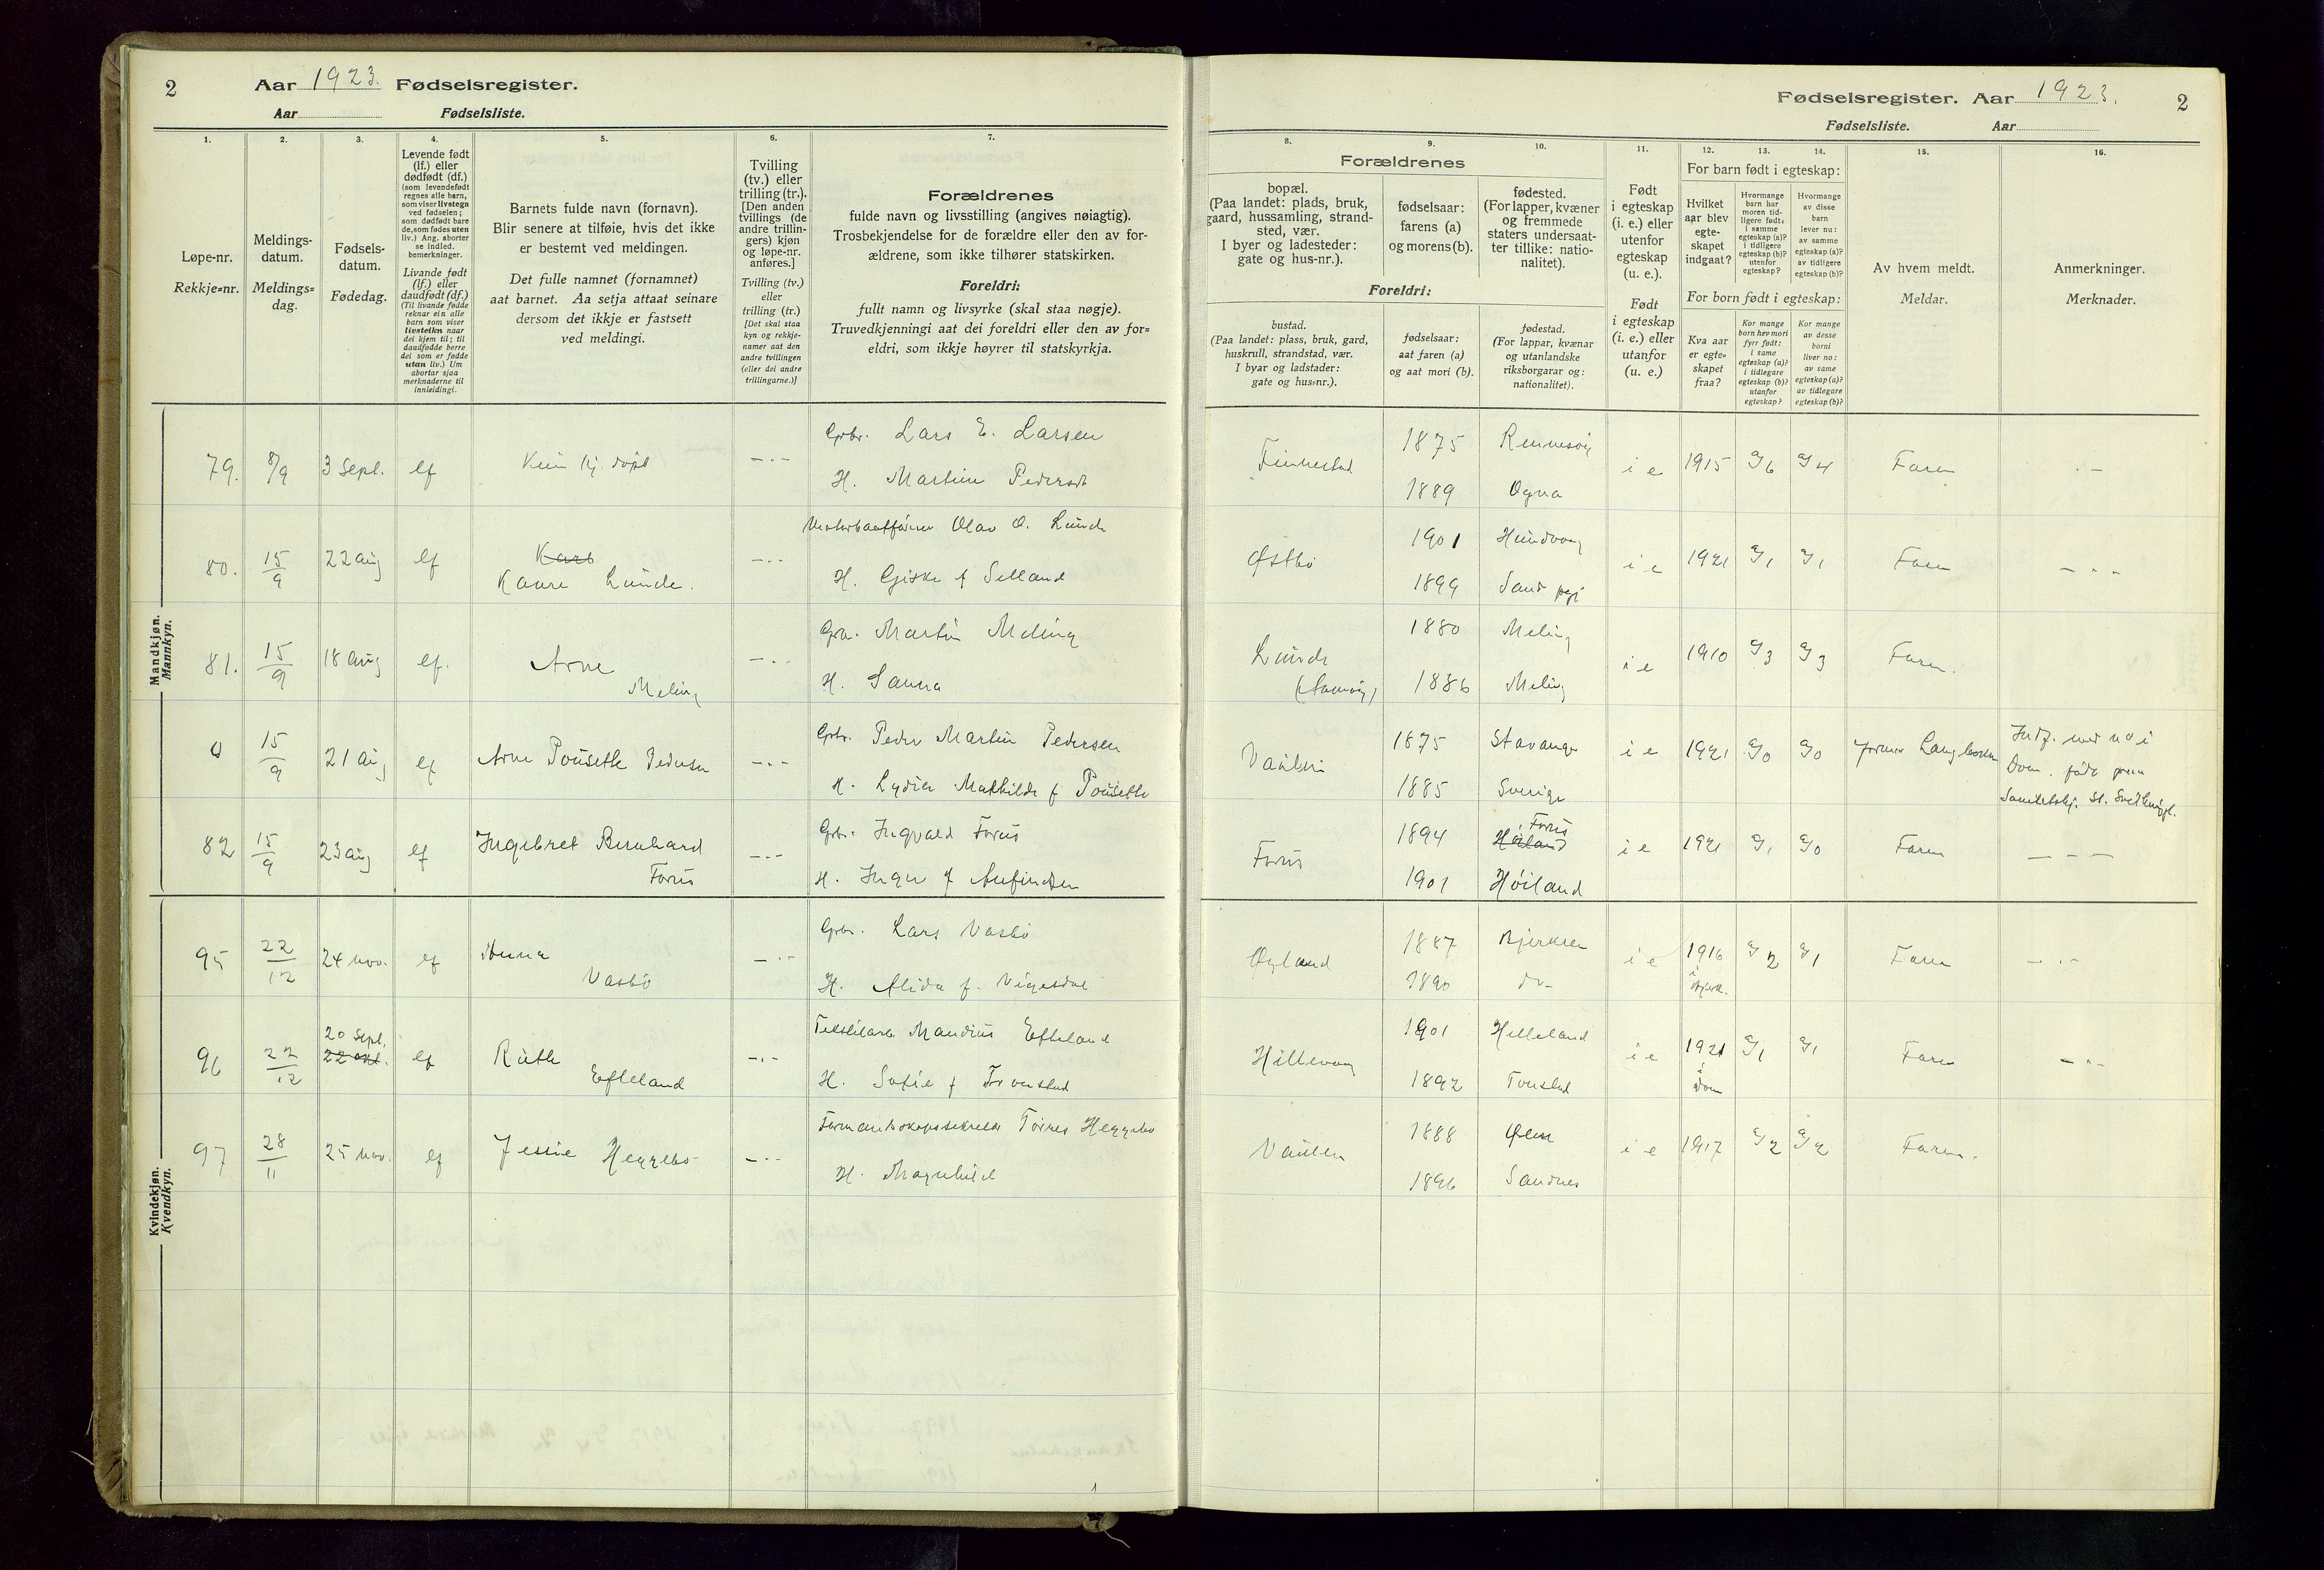 2
Aar 1923. Fødselsregister.
Aar Fødselsliste.
1.
Løpe-nr.
Rekkje=nr.
2.
Meldings-
datum.
Meldings=
dag.
3.
Fødsels-
datum.
Fødedag.
4.
Levende født
(lf.) eller
dødfødt (df.)
(som levendefødt
regnes alle barn,
som viser livstegn
ved fødselen;
som dødfødt bare
de, som fødes uten
liv.) Ang. aborter
se indled.
bemerkninger.
Livande født
(lf.) eller
daudfødt (df.)
(Til livande fødde
reknar ein alle
barn som viser
livsteikn naar
dei kjem til; til
daudfødde berre
dei som er fødde
utan liv.) Um
abortar sjaa
merknaderne til
innleidingi.
5.
Barnets fulde navn (fornavn).
Blir senere at tilføie, hvis det ikke
er bestemt ved meldingen.
Det fulle namnet (fornamnet)
aat barnet. Aa setja attaat seinare
dersom det ikkje er fastsett
ved meldingi.
6.
Tvilling
(tv.) eller
trilling (tr.).
[Den anden
tvillings (de
andre trillin-
gers) kjøn
og løpe-nr.
anføres.]
Tvilling (tv.)
eller
trilling (tr.)
[Det skal staa
kyn og rekkje-
namer aat den
andre tvillingen
(eller dei andre
trillingarne.)]
7.
Forældrenes
fulde navn og livsstilling (angives nøiagtig).
Trosbekjendelse for de forældre eller den av for-
ældrene, som ikke tilhører statskirken.
Foreldri:
fullt namn og livsyrke (skal staa nøgje).
Truvedkjenningi aat dei foreldri eller den av for=
eldri, som ikkje høyrer til statskyrkja.
Mandkjøn.
Mannkyn.
79. 8/9 3 Sept. lf
Gbr. Lars E. Larsen
H. Martine Pedersdt
80. 15/9 22 aug lf
Kaare Lunde.
Olav O. Lunde
H. Giske f Selland
81. 15/9 18 aug lf.
Arne
Meling
Gbr. Martin Meling
H. Sanna
0 15/9 21 aug lf Arne Pousette Pedersen
Gbr. Peder Martin Pedersen
H. Lydia Mathilde f Pousette
82 15/9 23 aug lf Ingebret Bernhard
Forus
Gbr. Ingvald Forus
H. Inger f Aufindsen
Kvindekjøn.
Kvendkyn.
95 22/12 24 nov. lf Anna
Vasbø
Gbr. Lars Vasbø
H. Alida f. Vigesdal
96 22/12 20 Sept. 22 okt. lf Ruth
Efteland
Mandius Efteland
H. Sofie f Tronstad
97 28/11 25 nov. lf Jessie Heggebø
Torres Heggebø
H. Magnhild
Fødselsregister. Aar 1923. 2
Fødselsliste. Aar
Forældrenes
8.
bopæl.
(Paa landet: plads, bruk,
gaard, hussamling, strand-
sted, vær.
I byer og ladesteder:
gate og hus-nr.).
9.
fødselsaar:
farens (a)
og morens (b).
10.
fødested.
(For lapper, kvæner
og fremmede
staters undersaat-
ter tillike: natio-
nalitet).
Foreldri:
bustad.
(Paa landet: plass, bruk, gard,
huskrull, strandstad, vær.
I byar og ladstader:
gate og hus=nr.).
fødselsaar:
aat faren (a)
og aat mori (b).
fødestad.
(For lappar, kvænar
og utanlandske
riksborgarar og:
nationalitet).
11.
Født
i egteskap
(i. e.) eller
utenfor
egteskap
(u. e.).
Født
i egteskap
(i. e.) eller
utanfor
(u. e.)
For barn født i egteskap:
12.
Hvilket
aar blev
egte-
skapet
indgaat?
13.
Hvormange
barn har
moren tid-
ligere født:
i samme
egteskap (a)?
i tidligere
egteskap (b)?
utenfor
egteskap?
14.
Hvormange
av disse
barn
lever nu:
av samme
egteskap (a)?
av tidligere
egteskap (b)?
For born født i egteskap:
Kva aar
er egte-
skapet
fraa?
Kor mange
born hev mori
fyrr født:
i same
egteskap (a)?
i tidlegare
egteskap (b)?
utanfor
egteskap?
Kor mange
av desse
borni
liver no:
av same
egteskap (a)?
av tidlegare
egteskap (b)?
15.
Av hvem meldt.
Meldar.
16.
Anmerkninger.
Merknader.
Finnestad 1875 Rennesøy i e 1915 a/6 a/4 Faren
1889 Ogna
Østbø 1901 Hundvaag i e 1921 a/1 a/1 Faren
1899 Sand
Lunde 1880 Meling i e 1910 a/3 a/3 Faren.
1886 Meling
Vaulen 1875 Stavanger i e 1921 a/0 a/0
1885 Sverige
Forus 1894 Høiland Forus i e 1921 a/1 a/0 Faren
1901 Høiland
1887 Bjerkrem i e 1916 i Bjerk. a/2 a/1 Faren
1890 do
Hillevaag 1901 Helleland i e 1921 i Dom a/1 a/1 Faren
1892 Tonstad
Vaulen 1888 Ølen i e 1917 a/2 a/2 Faren.
1896 Sandnes